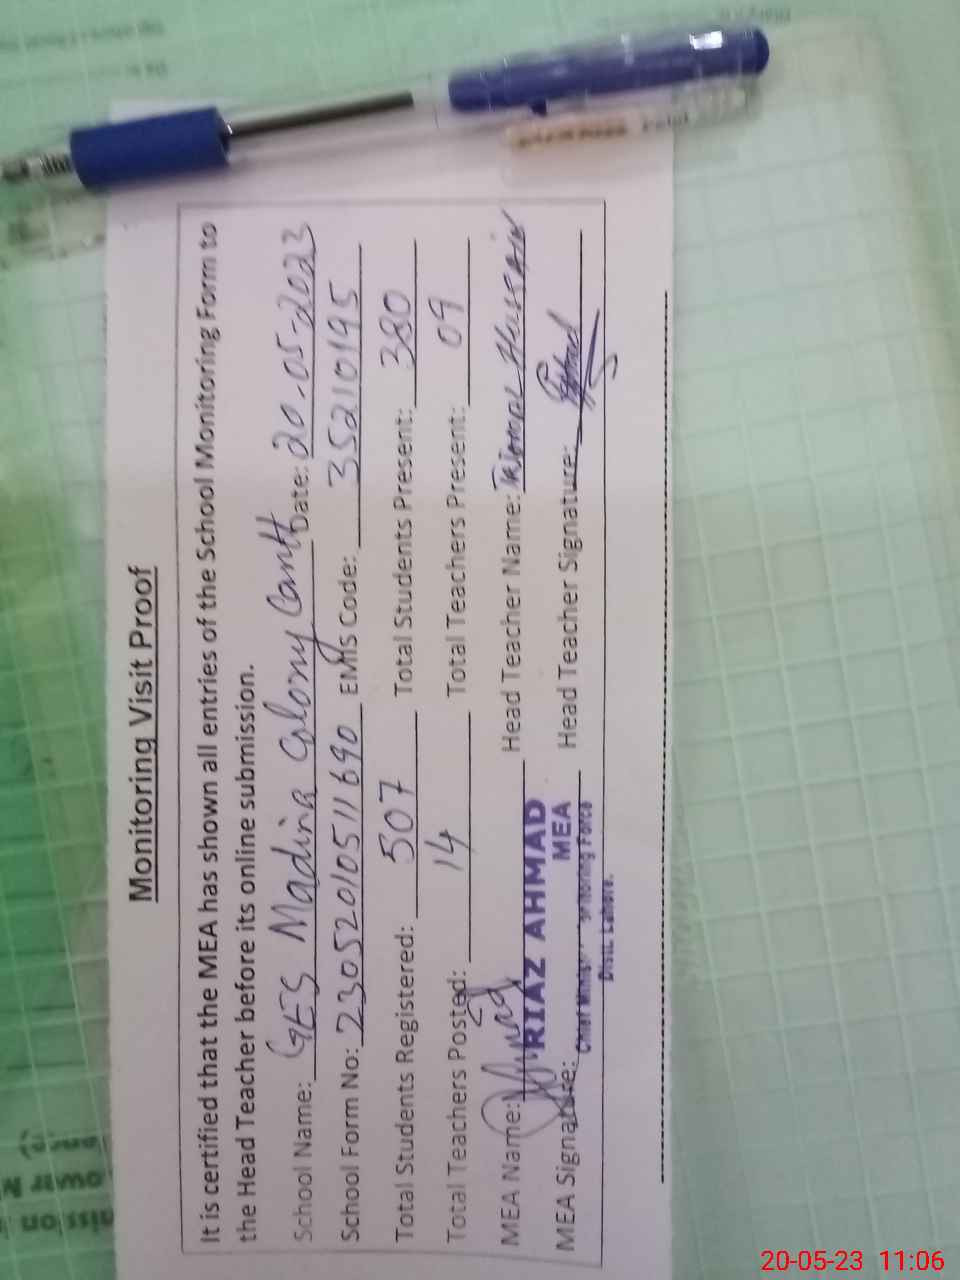 Monitoring Visit Proof
It is certified that the MEA has shown all entries of the School Monitoring Form to
the Head Teacher before its online submission.
School Name: GES Madina Colony Cantt Date: 20-05-2023
School Form No: 23052010511690 EMIS Code: 35210195
Total Students Registered: 507 Total Students Present: 380
Total Teachers Posted: 14 Total Teachers Present: 09
MEA Name: RIAZ AHMAD Head Teacher Name: Hussain
MEA
MEA Signature: Head Teacher Signature:
Chief Minister Monitoring Force
Distt. Lahore.
20-05-23 11:06